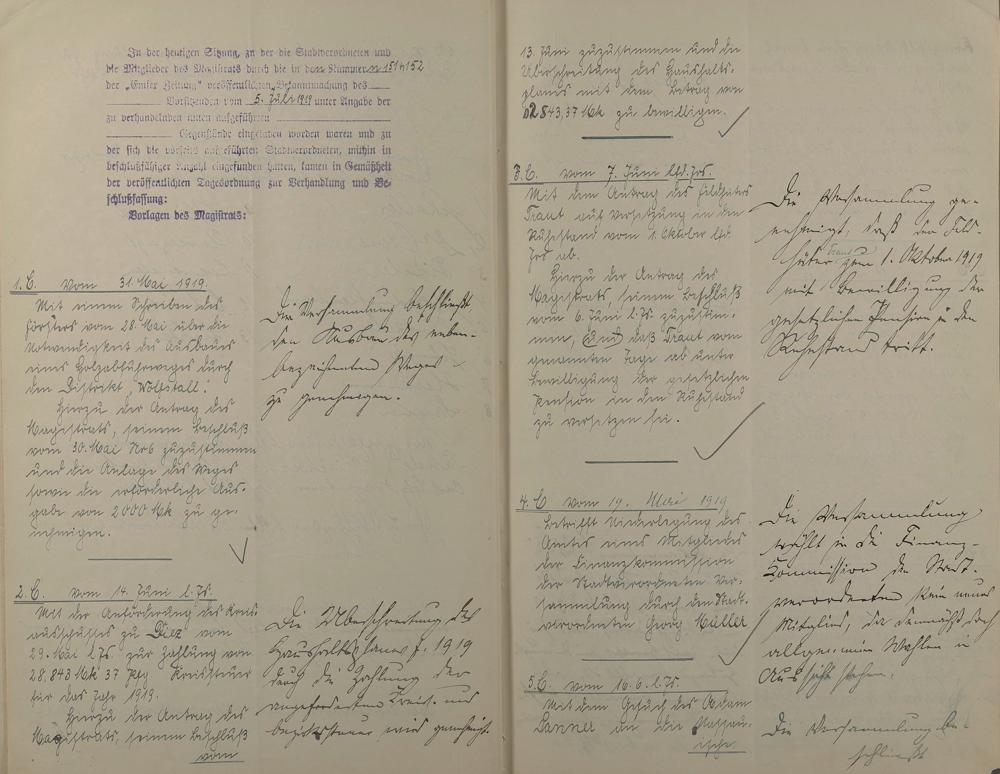 In der heutigen Sitzung, zu der die Stadtverordneten und
die Mitglieder des Magistrats durch die in den Nummern 151 u 152
der „Emser Zeitung“ veröffentlichten Bekanntmachung des
Vorsitzenden vom 5. Juli 1919 unter Angabe der
zu verhandelnden unten aufgeführten
Gegenstände eingeladen worden waren und zu
der sich die vorseits aufgeführten Stadtverordneten, mithin in
beschlußfähiger Anzahl eingefunden hatten, kamen in Gemäßheit
der veröffentlichten Tagesordnung zur Verhandlung und Be-
schlußfassung:
Vorlagen des Magistrats:
1. C. vom 31. Mai 1919.
Mit einem Schreiben des
Försters vom 28. Mai über die
Notwendigkeit des Ausbaues
eines Holzabfuhrweges durch
den Distrikt „Wolfstall“.
Hierzu der Antrag des
Magistrats, seinem Beschluß
vom 30. Mai Nr 6 zuzustimmen
und die Anlage des Weges
sowie die erforderliche Aus-
gabe von 2000 Mk zu ge-
nehmigen.
Die Versammlung beschließt
den Ausbau des neben-
bezeichneten Weges
zu genehmigen.
2. C. vom 14. Juni l. Js.
Mit der Anforderung des Kreis-
ausschusses zu Diez vom
29. Mai l. Js. zur Zahlung von
28.843 Mk 37 Pfg. Kreissteuer
für das Jahr 1919.
Hierzu der Antrag des
Magistrats, seinem Beschluß
vom
Die Überschreitung des
Haushaltsplanes f. 1919
durch die Zahlung der
angeforderten Kreis- und
Bezirkssteuer wird genehmigt.
13. Juni zuzustimmen und die
Überschreitung des Haushalts-
planes mit dem Betrag von
12843,37 Mk zu bewilligen.
3. C. vom 7. Juni lfd. Jrs.
Mit dem Antrag des Feldhüters
Traut auf Versetzung in den
Ruhestand vom 1. Oktober lfd.
Jrs ab.
Hierzu der Antrag des
Magistrats, seinem Beschluß
vom 6. Juni l. Js. zuzustim-
men, und daß Traut vom
genannten Tage ab unter
Bewilligung der gesetzlichen
Pension in den Ruhestand
zu versetzen sei.
Die Versammlung ge-
nehmigt, daß der Feld-
hüter Traut zum 1. Oktober 1919
mit Bewilligung der
gesetzlichen Pension in den
Ruhestand tritt.
4. C vom 19. Mai 1919
betrifft Niederlegung des
Amtes eines Mitgliedes
der Finanzkommission
der Stadtverordneten Ver-
sammlung durch den Stadt-
verordneten Georg Müller
Die Versammlung
wählt in die Finanz-
Kommission der Stadt-
verordneten kein neues
Mitglied, da demnächst doch
allgemeine Wahlen in
Aussicht stehen.
5. C. vom 16. 6. l. Js.
Mit dem Gesuch des Adam
Sanner an die Nassau-
ische
Die Versammlung be-
schließt